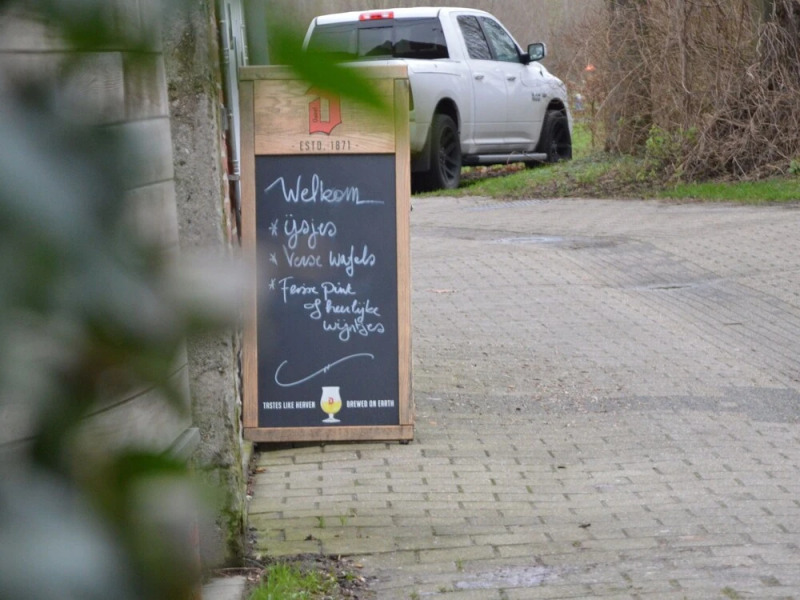 D
- ESTD. 1871 -
Welkom
* ijsjes
* Verse Wafels
* Frisse pint
of heerlijke
wijntjes
TASTES LIKE HEAVEN BREWED ON EARTH